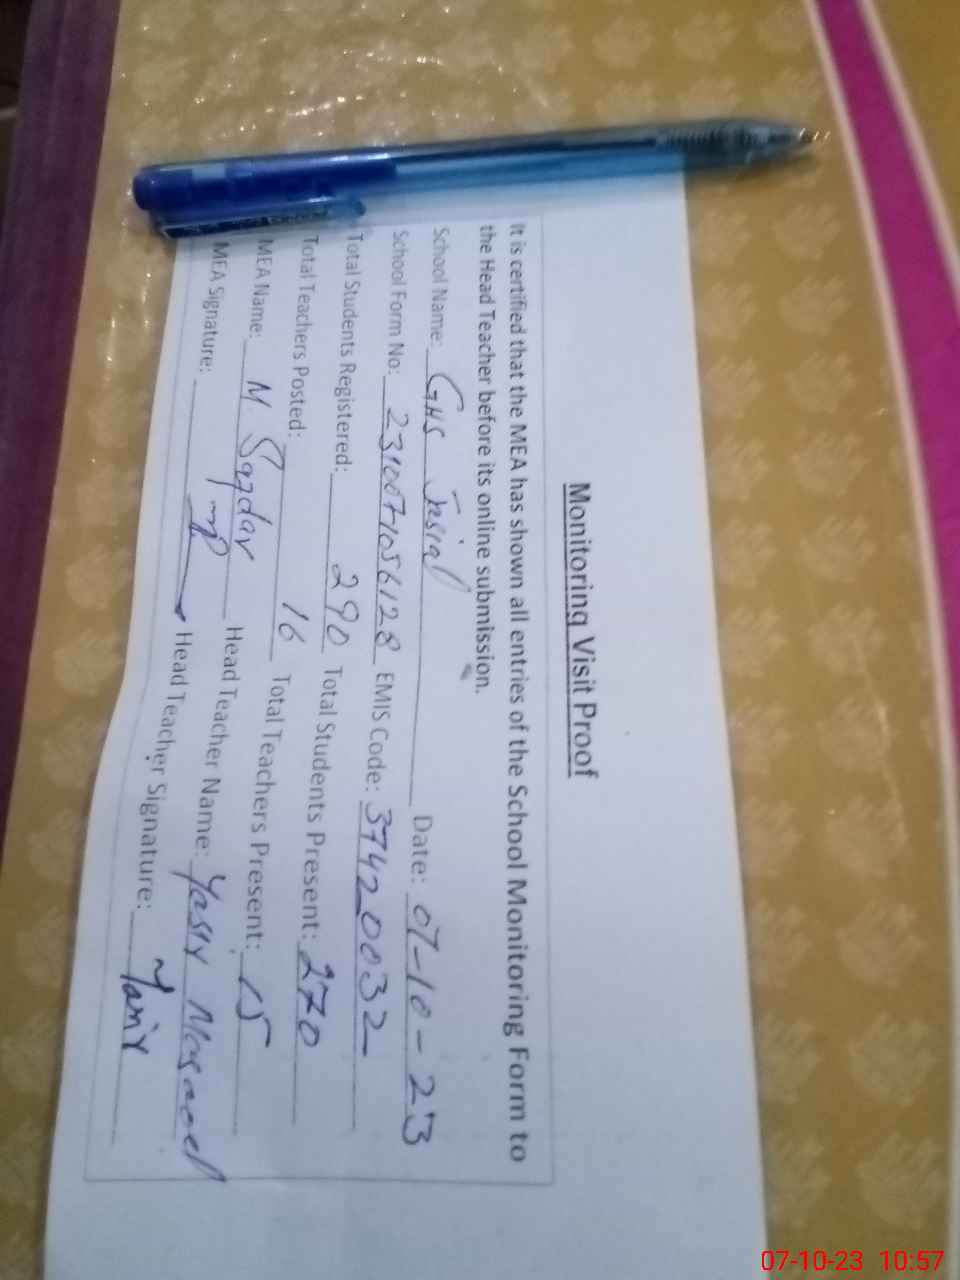 Monitoring Visit Proof
It is certified that the MEA has shown all entries of the School Monitoring Form to
the Head Teacher before its online submission.
School Name: GHS Jasial Date: 07-10-23
School Form No: 2310071056128 EMIS Code: 37420032
Total Students Registered: 290 Total Students Present: 270
Total Teachers Posted: 16 Total Teachers Present: 15
MEA Name: M Safdar Head Teacher Name: Yasir
MEA Signature: Head Teacher Signature: Yasir
07-10-23 10:57